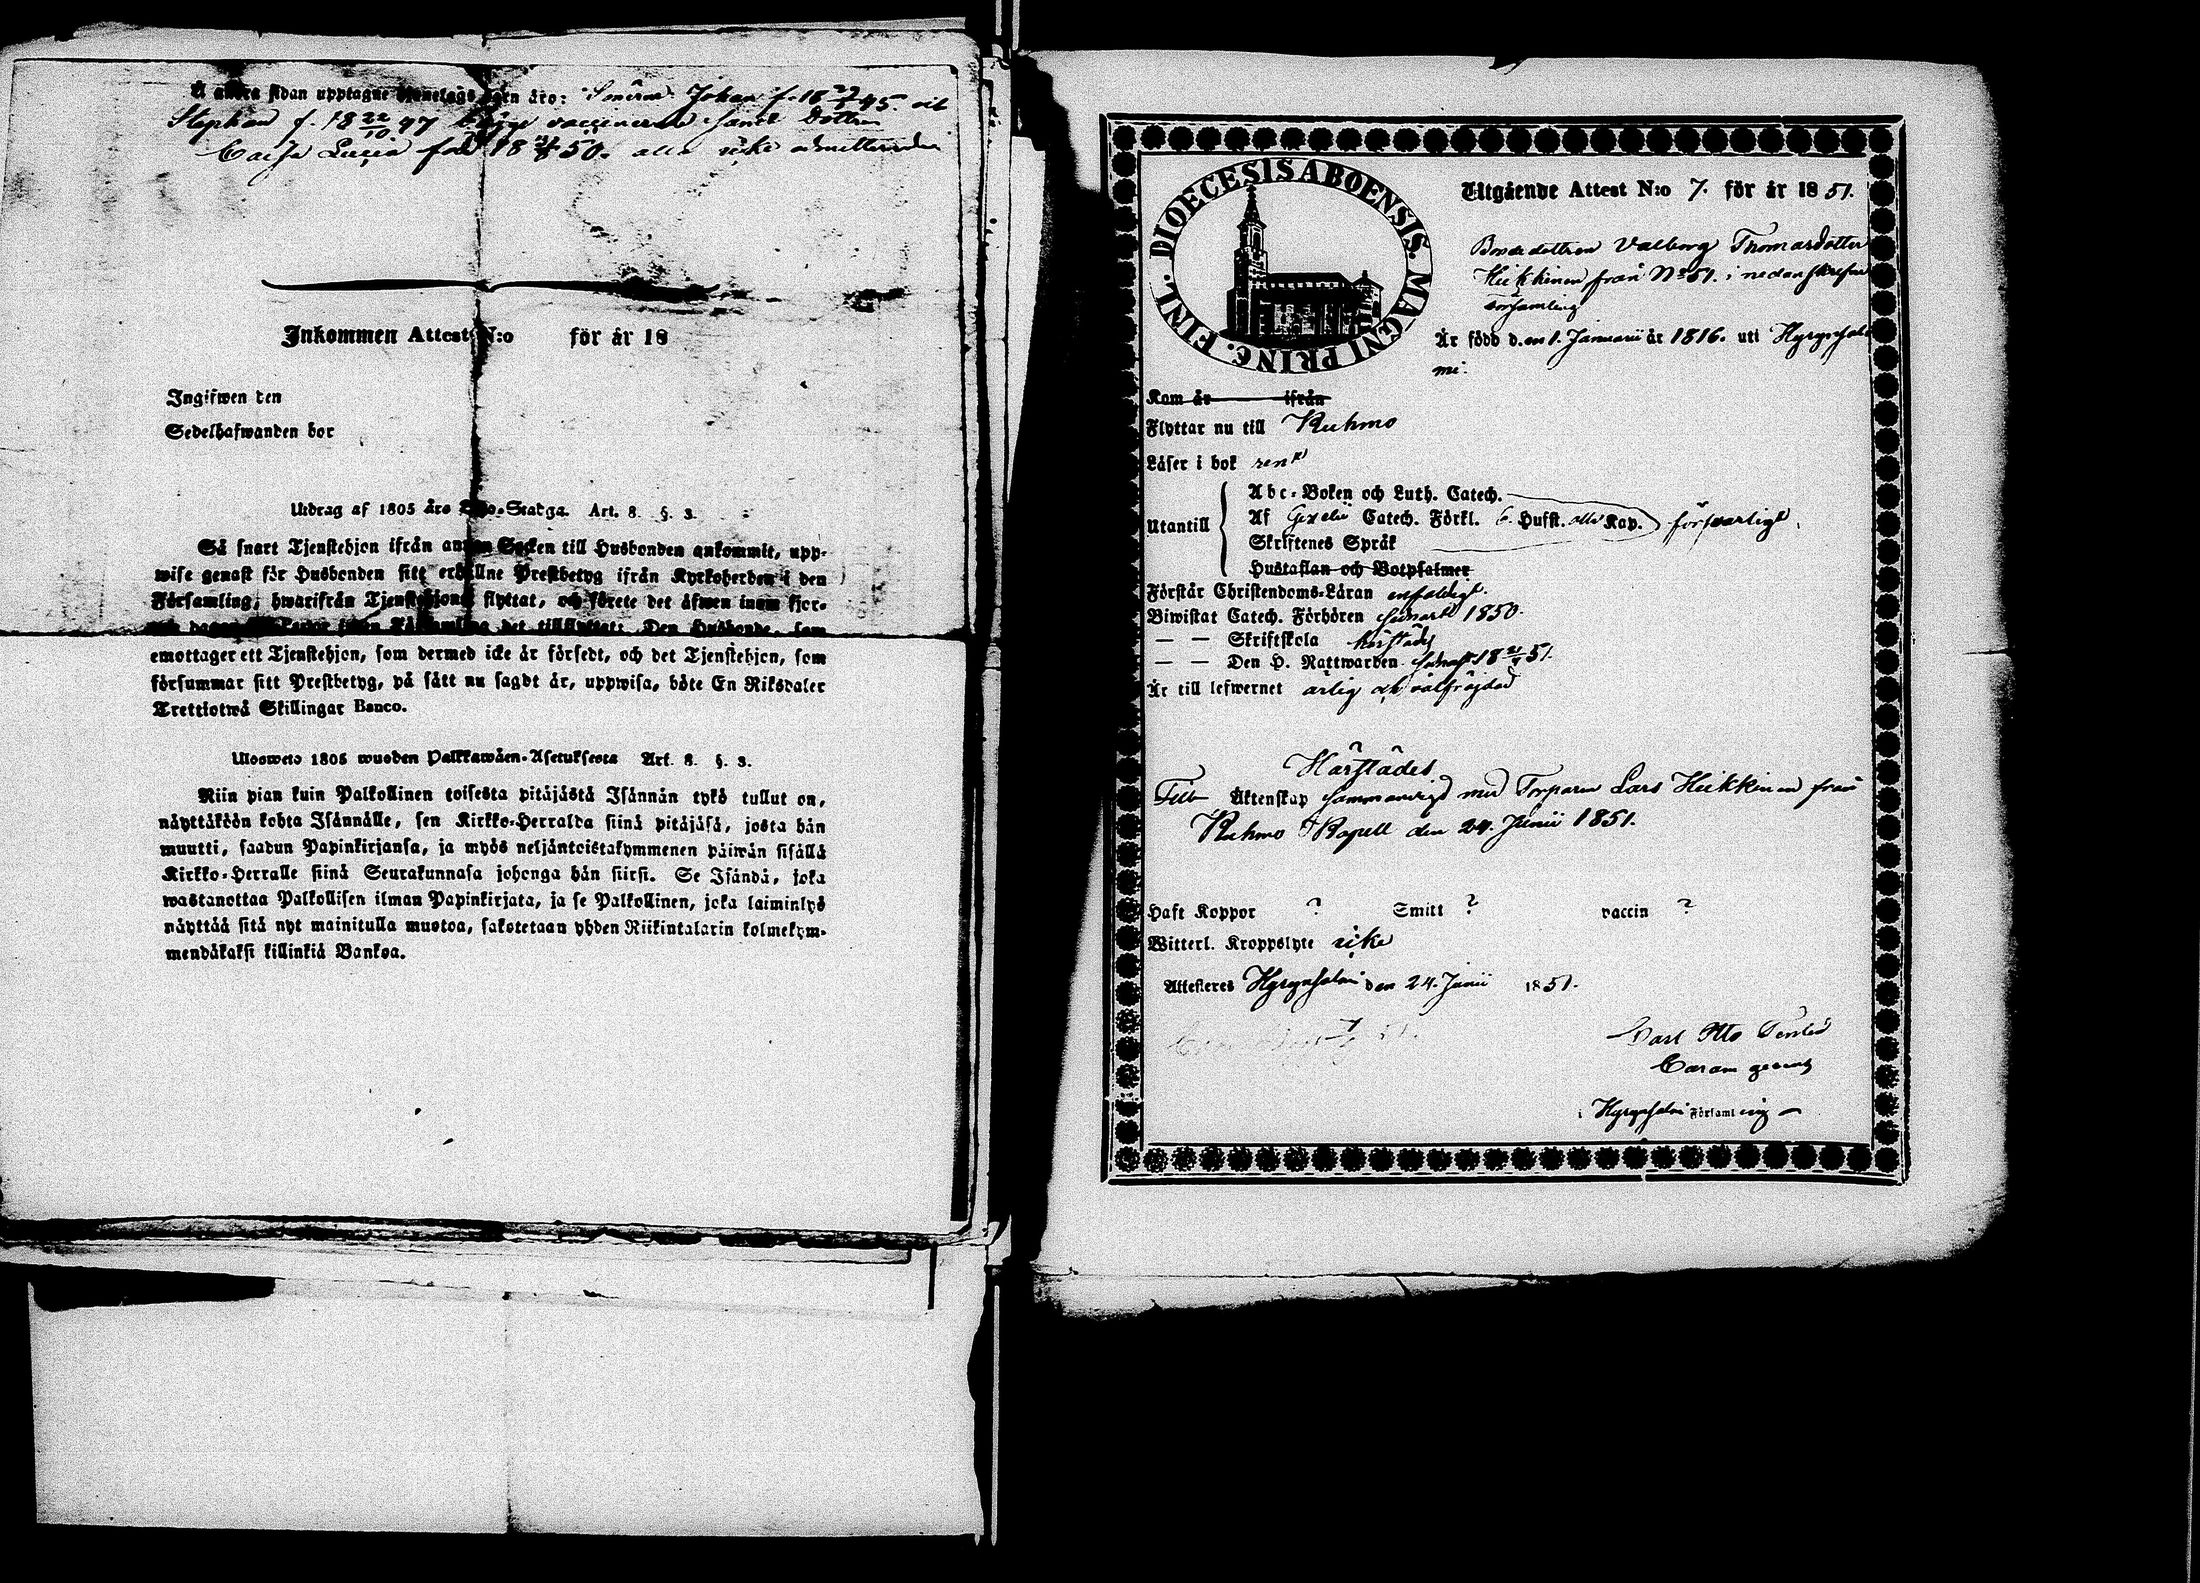 Å andra sidan upptagne ägtenskaps barn äro: Sönerne Johan f. 18 45. och
Stephan f. 18 22/10 47 vaccinerade samt Dottren
Caisa Lucia född 18 50. alla icke admitterade
Inkommen Attest N:o för år 18
Ingifwen den
Sedelhafwanden bor
Utdrag af 1805 års Lego-Stadga. Art. 8. §. 3.
Så snart Tjenstehjon ifrån annan Socken till Husbonden ankommit, upp-
wise genast för Husbonden sitt erhållne Prestbetyg ifrån Kyrkoherden i den
Församling, hwarifrån Tjenstehjonet flyttat, och förete det äfwen inom fjor-
ton dagar för Pastor i den Församling det tillflyttat: Den Husbonde, som
emottager ett Tjenstehjon, som dermed icke är försedt, och det Tjenstehjon, som
försummar sitt Prestbetyg, på sätt nu sagdt är, uppwisa, böte En Riksdaler
Trettiotwå Skillingar Banco.
Uloswetö 1805 wuoden Palkkawäen-Asetuksesta Art. 8. §. 3.
Niin pian kuin Palkollinen toisesta pitäjästä Isännän tykö tullut on,
näyttäköön kohta Isännälle, sen Kirkko-Herralda siinä pitäjäsä, josta hän
muutti, saadun Papinkirjansa, ja myös neljäntoistakymmenen päiwän sisällä
Kirkko-Herralle siinä Seurakunnasa johonga hän siirsi. Se Isändä, joka
wastanottaa Palkollisen ilman Papinkirjata, ja se Palkollinen, joka laiminlyö
näyttää sitä nyt mainitulla muotoa, sakotetaan yhden Riikintalarin kolmekym-
mendäkaksi killinkiä Bankoa.
DIOECESIS ABOENSIS. MAGNI PRINC. FINL.
Utgående Attest N:o 7. för år 1851.
Bondedottren Valborg Thomasdotter
Heikkinen från No 51. i nedanskrefne
Församling
Är född d.en 1. Januarii år 1816. uti Hyrynsal-
mi.
Kom år ifrån
Flyttar nu till Kuhmo
Läser i bok rent
Utantill
Abc-Boken och Luth. Catech.
Af Gezelii Catech. Förkl. 6. Hufst. alla Kap. försvarligt.
Skriftenes Språk
Hustaflan och Botpsalmer
Förstår Christendoms-Läran enfaldigt.
Biwistat Catech. Förhören senast 1850.
— — Skriftskola härstädes
— — Den H. Nattwarden senast 18 51.
Är till lefwernet ärlig och välfräjdad
Härstädes
Till Äktenskap sammanvigd med Torparen Lars Heikkinen från
Kuhmo Kapell den 24. Junii 1851.
Haft Koppor ? Smitt ? vaccin ?
Witterl. Kroppslyte icke
Attesteres Hyrynsalmi den 24. Junii 1851.
Carl Otto
Curam gerens
i Hyrynsalmi Församling